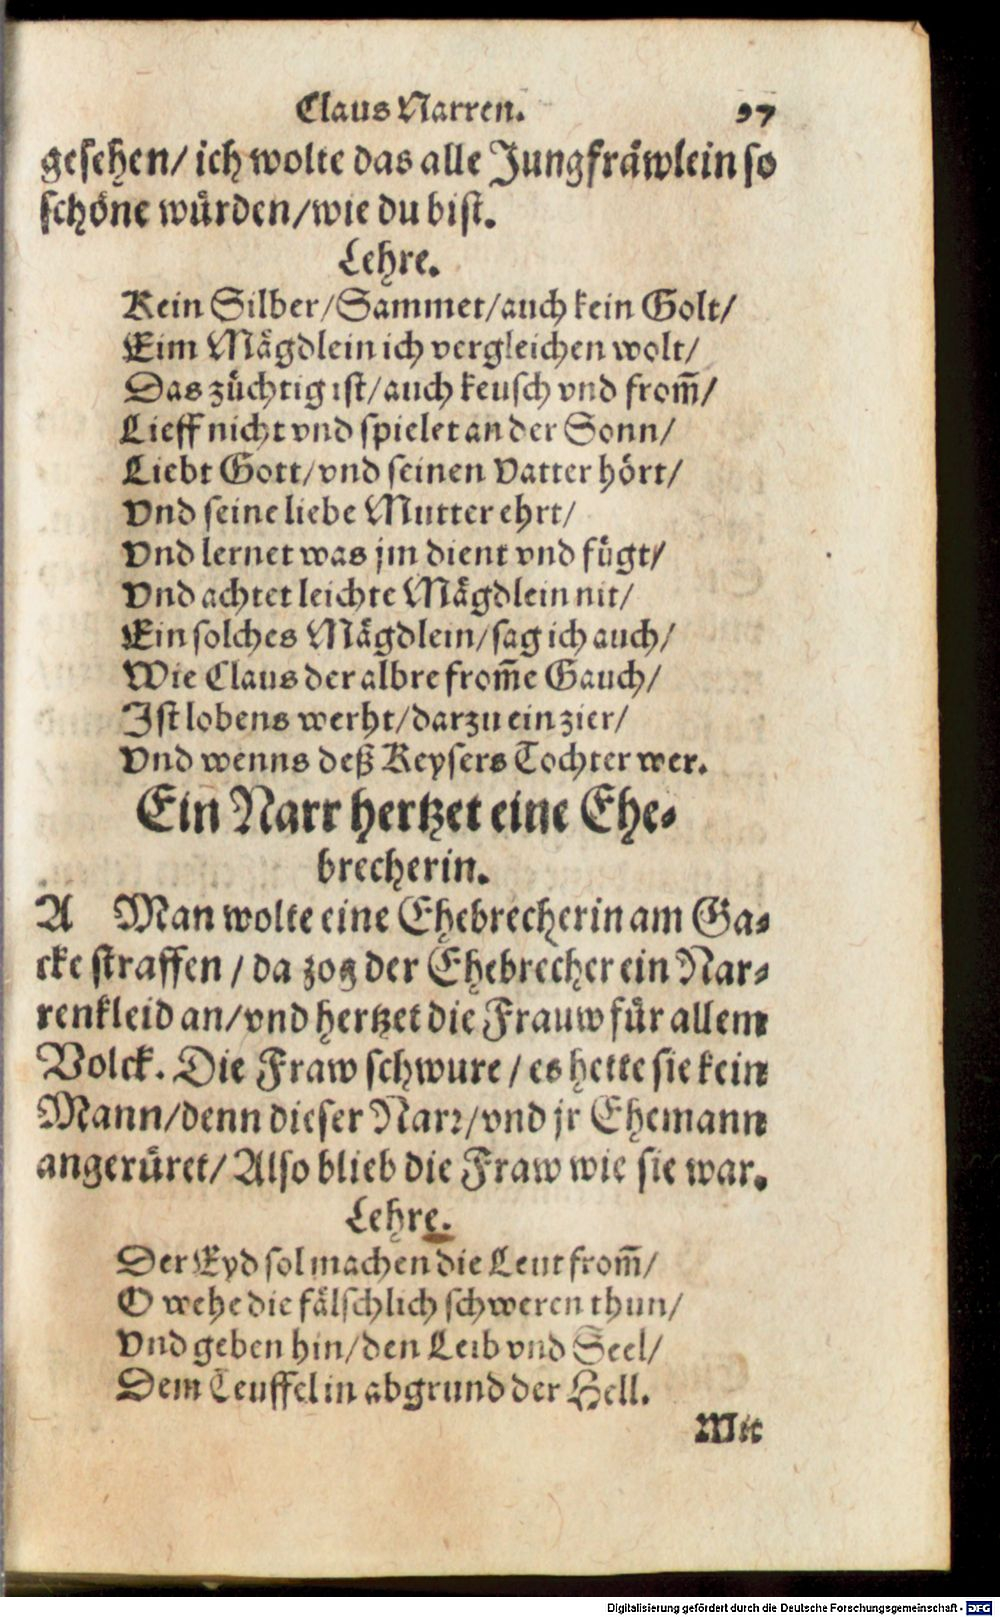 Claus Narren. 97
gesehen/ ich wolte das alle Jungfräwlein so
schöne würden/wie du bist.
Lehre.
Kein Silber/Sammet/auch kein Golt/
Eim Mägdlein ich vergleichen wolt/
Das züchtig ist/auch keusch vnd from̃/
Lieff nicht vnd spielet an der Sonn/
Liebt Gott/vnd seinen Vatter hört/
Vnd seine liebe Mutter ehrt/
Vnd lernet was jm dient vnd fügt/
Vnd achtet leichte Mägdlein nit/
Ein solches Mägdlein/sag ich auch/
Wie Claus der albre from̃e Gauch/
Ist lobens werht/darzu ein zier/
Vnd wenns deß Keysers Tochter wer.
Ein Narr hertzet eine Ehe-
brecherin.
A Man wolte eine Ehebrecherin am Ga-
cke straffen / da zog der Ehebrecher ein Nar-
renkleid an/vnd hertzet die Frauw für allem
Volck. Die Fraw schwure / es hette sie kein
Mann/denn dieser Narr/vnd jr Ehemann
angerüret/ Also blieb die Fraw wie sie war.
Lehre.
Der Eyd sol machen die Leut from̃/
O wehe die fälschlich schweren thun/
Vnd geben hin/den Leib vnd Seel/
Dem Teuffel in abgrund der Hell.
Mit
Digitalisierung gefördert durch die Deutsche Forschungsgemeinschaft - DFG